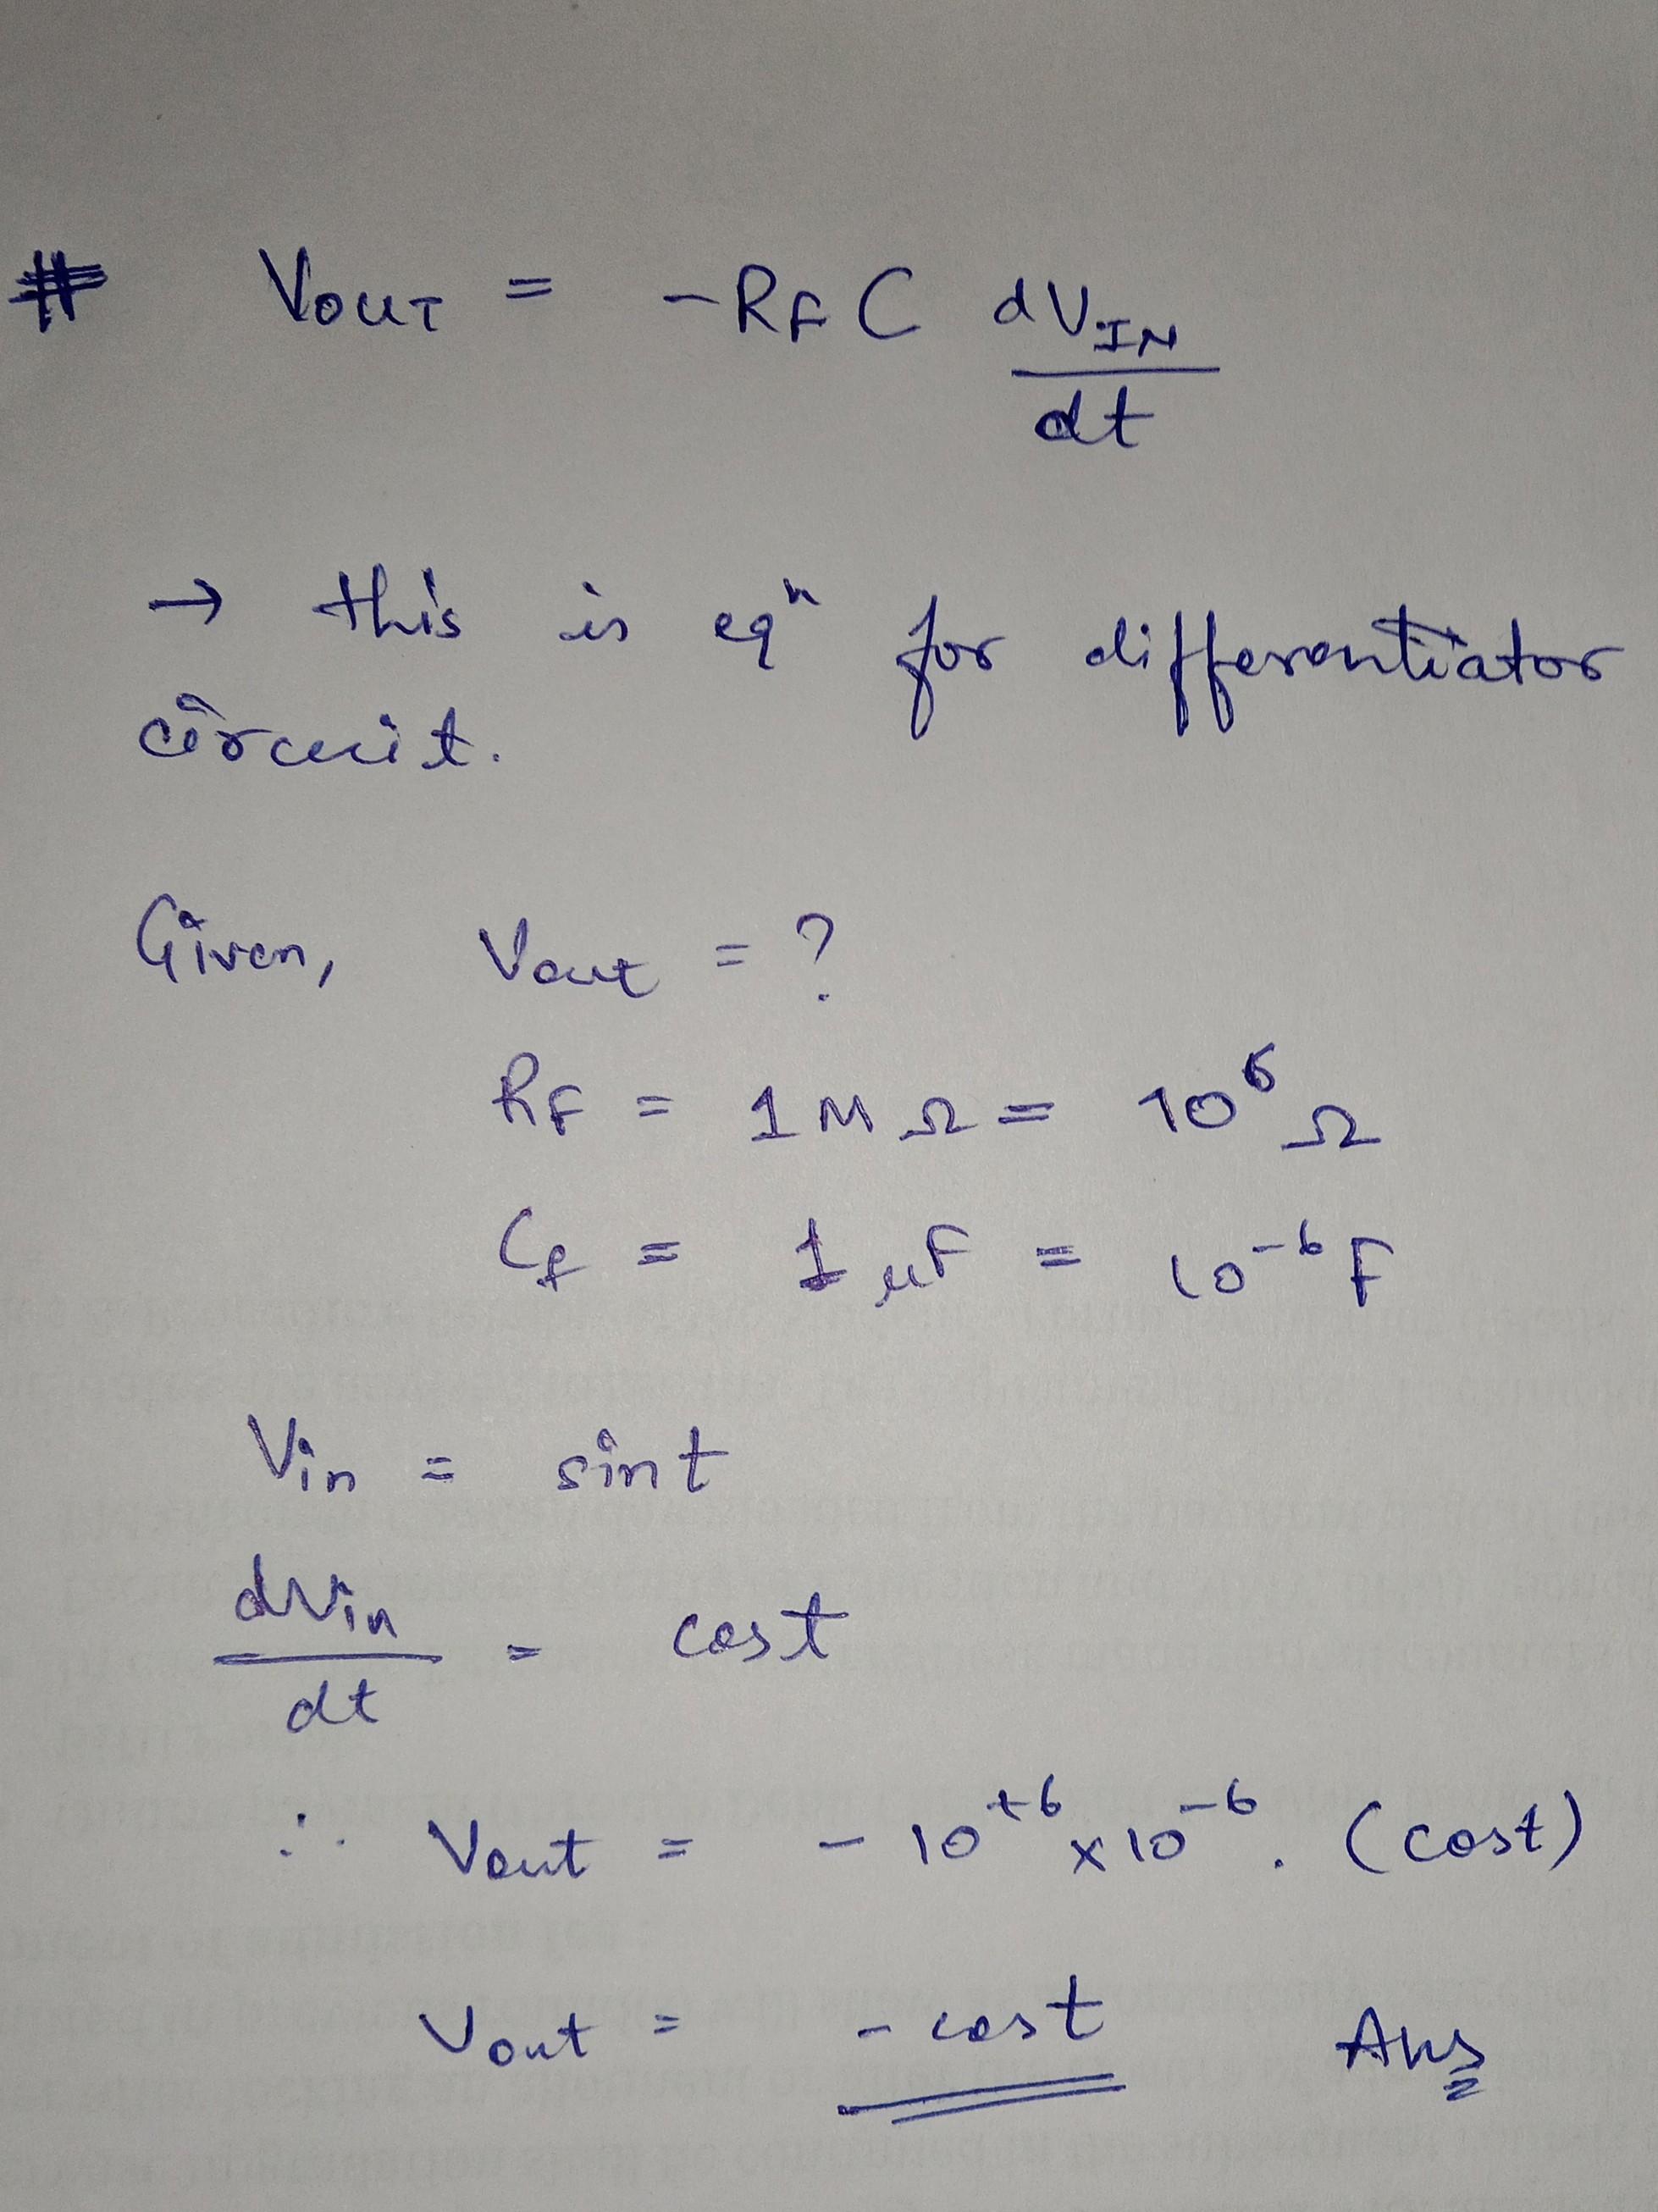 # VOUT = -RF C dVIN
dt
→ this is eqn for differentiator
circuit.
Given, Vout = ?
RF = 1 MΩ = 10⁶ Ω
Cf = 1 μF = 10⁻⁶ F
Vin = sint
dVin
= cost
dt
∴ Vout = - 10⁺⁶ x 10⁻⁶ . (cost)
Vout = - cost Ans